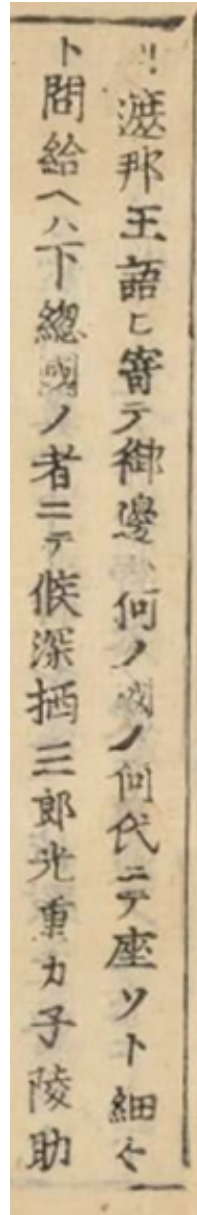 遮那王語ヒ寄テ御邊ハ何ノ國ノ何代ニテ座ソト細々
ト問給ヘハ下總國ノ者ニテ候深栖三郎光重カ子陵助